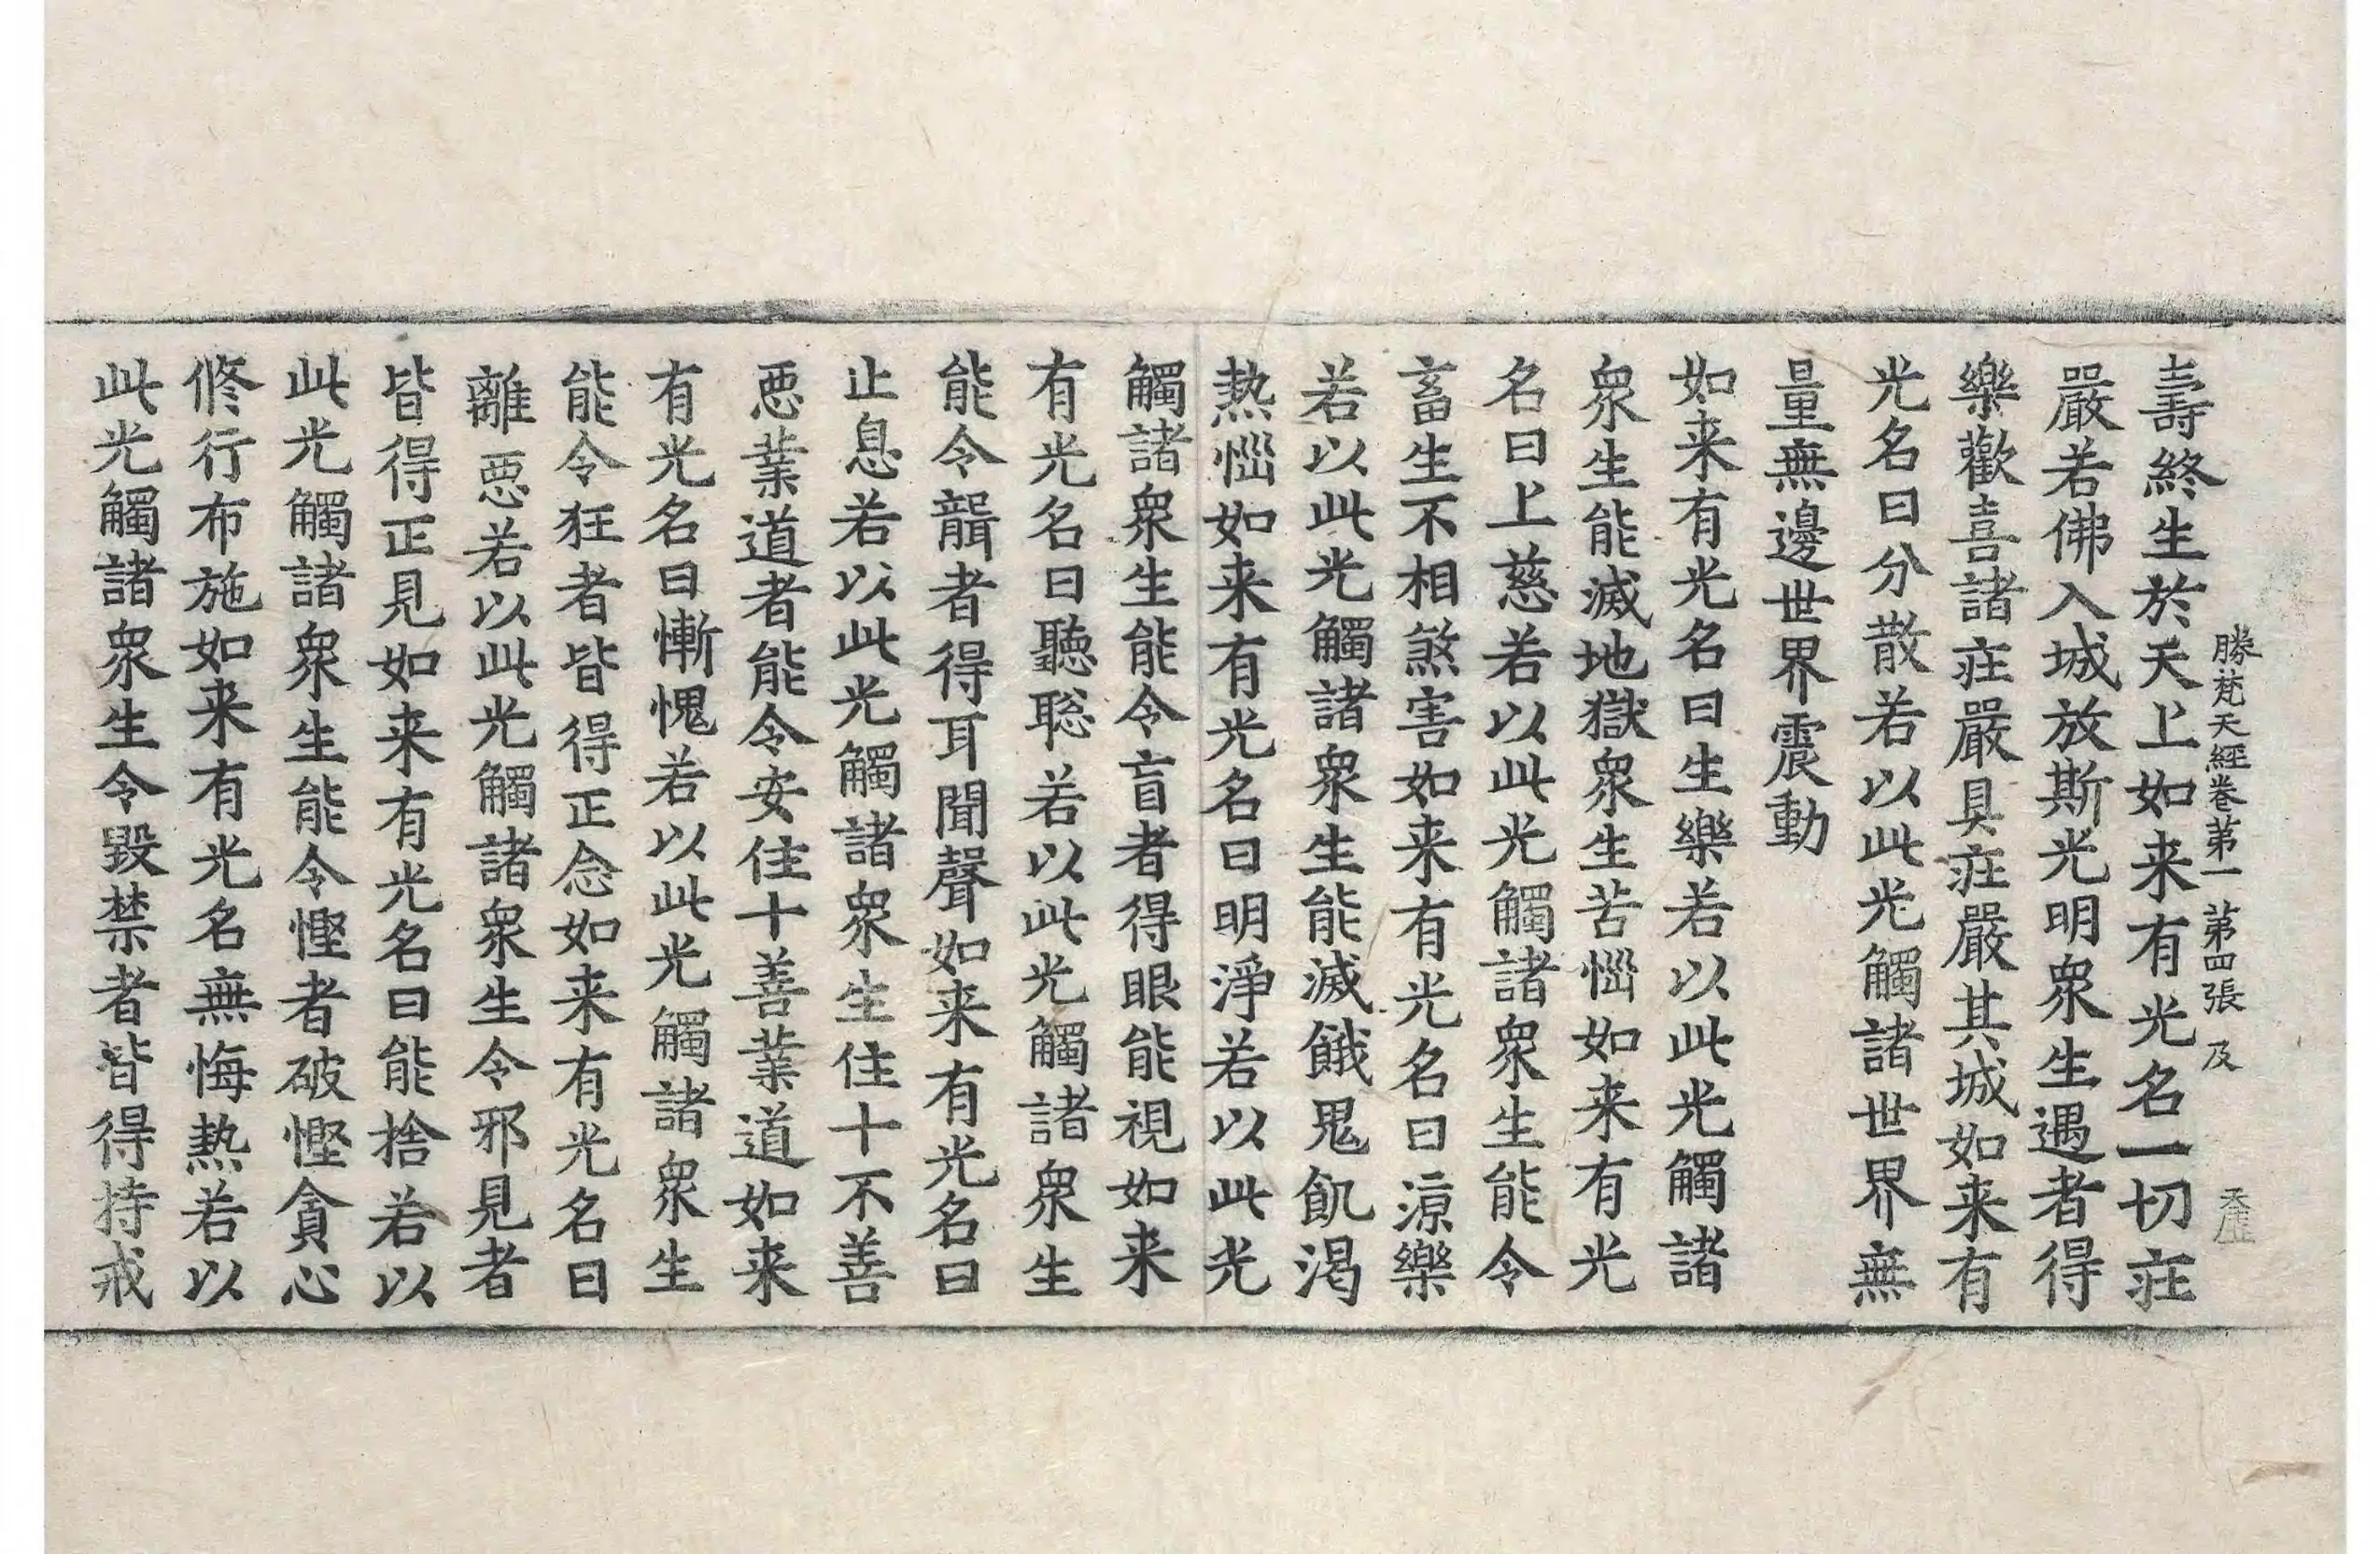 勝梵天經卷第一 第四張 及
壽終生於天上如来有光名一切莊
嚴若佛入城放斯光明衆生遇者得
樂歡喜諸莊嚴具莊嚴其城如来有
光名曰分散若以此光觸諸世界無
量無邊世界震動
如来有光名曰生樂若以此光觸諸
衆生能滅地獄衆生苦惱如来有光
名曰上慈若以此光觸諸衆生能令
畜生不相煞害如来有光名曰涼樂
若以此光觸諸衆生能滅餓鬼飢渴
熱惱如来有光名曰明淨若以此光
觸諸衆生能令盲者得眼能視如来
有光名曰聽聡若以此光觸諸衆生
能令聾者得耳聞聲如来有光名曰
止息若以此光觸諸衆生住十不善
悪業道者能令安住十善業道如来
有光名曰慚愧若以此光觸諸衆生
能令狂者皆得正念如来有光名曰
離悪若以此光觸諸衆生令邪見者
皆得正見如来有光名曰能捨若以
此光觸諸衆生能令慳者破慳貪心
修行布施如来有光名無悔熱若以
此光觸諸衆生令毀禁者皆得持戒